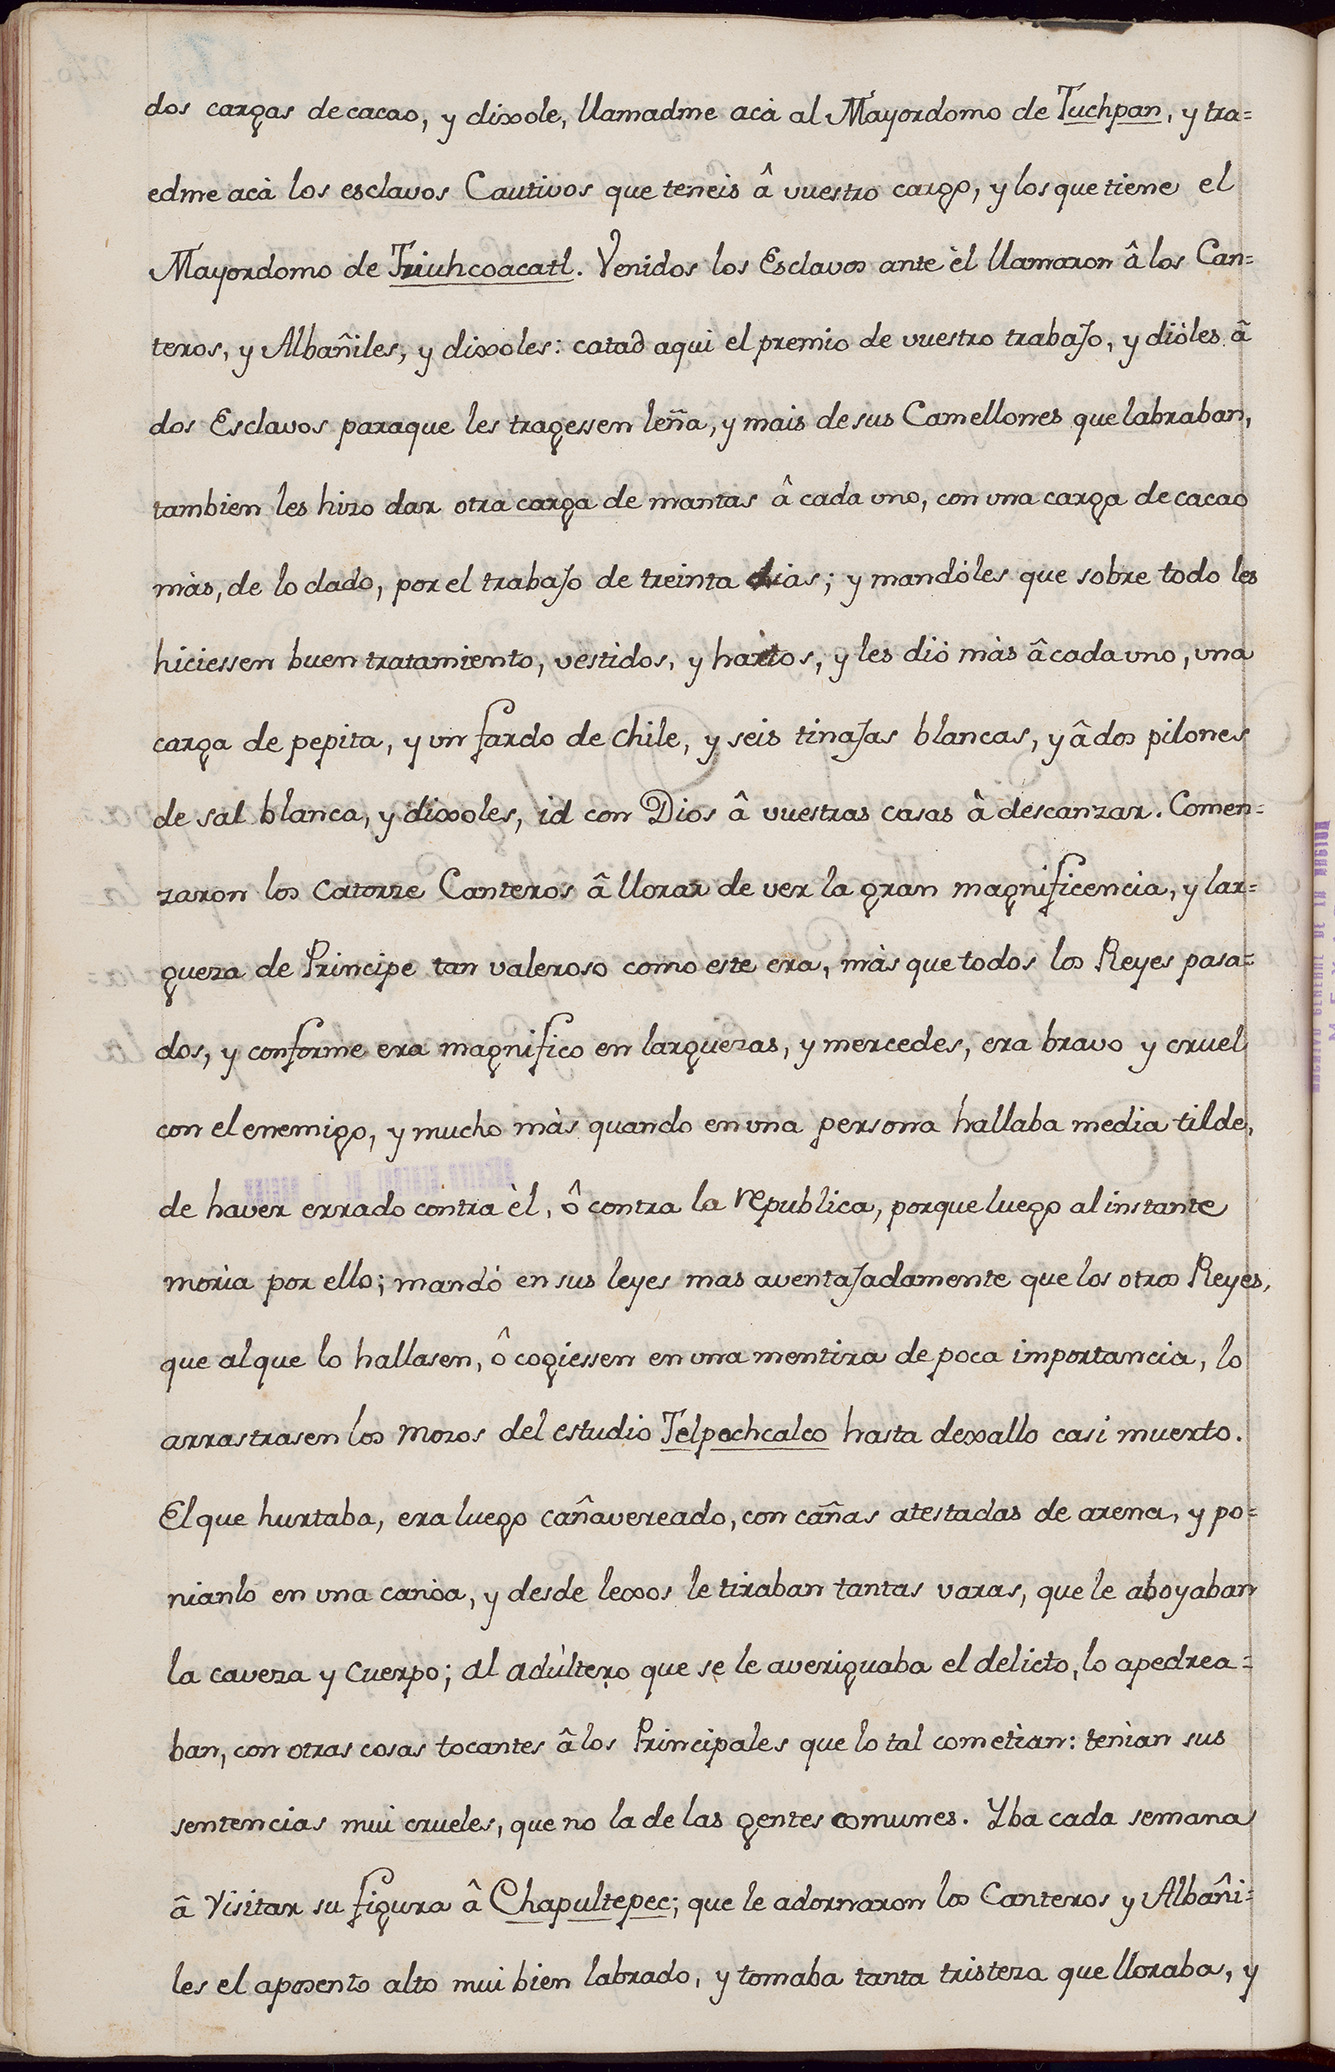 dos cargas de cacao, y dixole, llamadme acà al Mayordomo de Tuchpan, y tra=
edme acà los esclavos Cautivos que teneis â vuestro cargo, y los que tiene el
Mayordomo de Tziuhcoacatl. Venidos los Esclavos ante èl llamaron â los Can=
teros, y Albañiles, y dixoles: catad aqui el premio de vuestro trabajo, y diòles â
dos Esclavos paraque les tragessen leña, y mais de sus Camellones que labraban,
tambien les hizo dar otra carga de mantas â cada uno, con una carga de cacao
màs, de lo dado, por el trabajo de treinta dias; y mandòles que sobre todo les
hiciessen buen tratamiento, vestidos, y hartos, y les diò màs â cada uno, una
carga de pepita, y un fardo de chile, y seis tinajas blancas, y â dos pilones
de sal blanca, y dixoles, id con Dios â vuestras casas à descanzar. Comen=
zaron los catorze Canteros â llorar de ver la gran magnificencia, y lar=
gueza de Principe tan valeroso como este era, màs que todos los Reyes pasa=
dos, y conforme era magnifico en larguezas, y mercedes, era bravo y cruel
con el enemigo, y mucho màs quando en una persona hallaba media tilde,
de haver errado contra èl, ô contra la republica, porque luego al instante
moria por ello; mandò en sus leyes mas aventajadamente que los otros Reyes,
que al que lo hallasen, ô cogiessen en una mentira de poca importancia, lo
arrastrasen los mozos del estudio Telpochcalco hasta dexallo casi muerto.
El que hurtaba, era luego cañavereado, con cañas atestadas de arena, y po=
nianlo en una canòa, y desde lexos le tiraban tantas varas, que le aboyaban
la caveza y cuerpo; al adùltero que se le averiguaba el delicto, lo apedrea=
ban, con otras cosas tocantes â los Principales que lo tal cometian: tenian sus
sentencias mui crueles, que no la de las gentes comunes. Yba cada semana
â visitar su figura â Chapultepec; que le adornaron los Canteros y Albañi=
les el aposento alto mui bien labrado, y tomaba tanta tristeza que lloraba, y